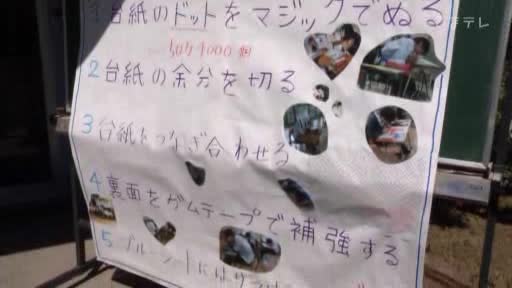 1台紙のドットをマジックでぬる
2台紙の余分を切る
3台紙をつなぎ合わせる
4裏面をガムテープで補強する
5ブルーシートにはり